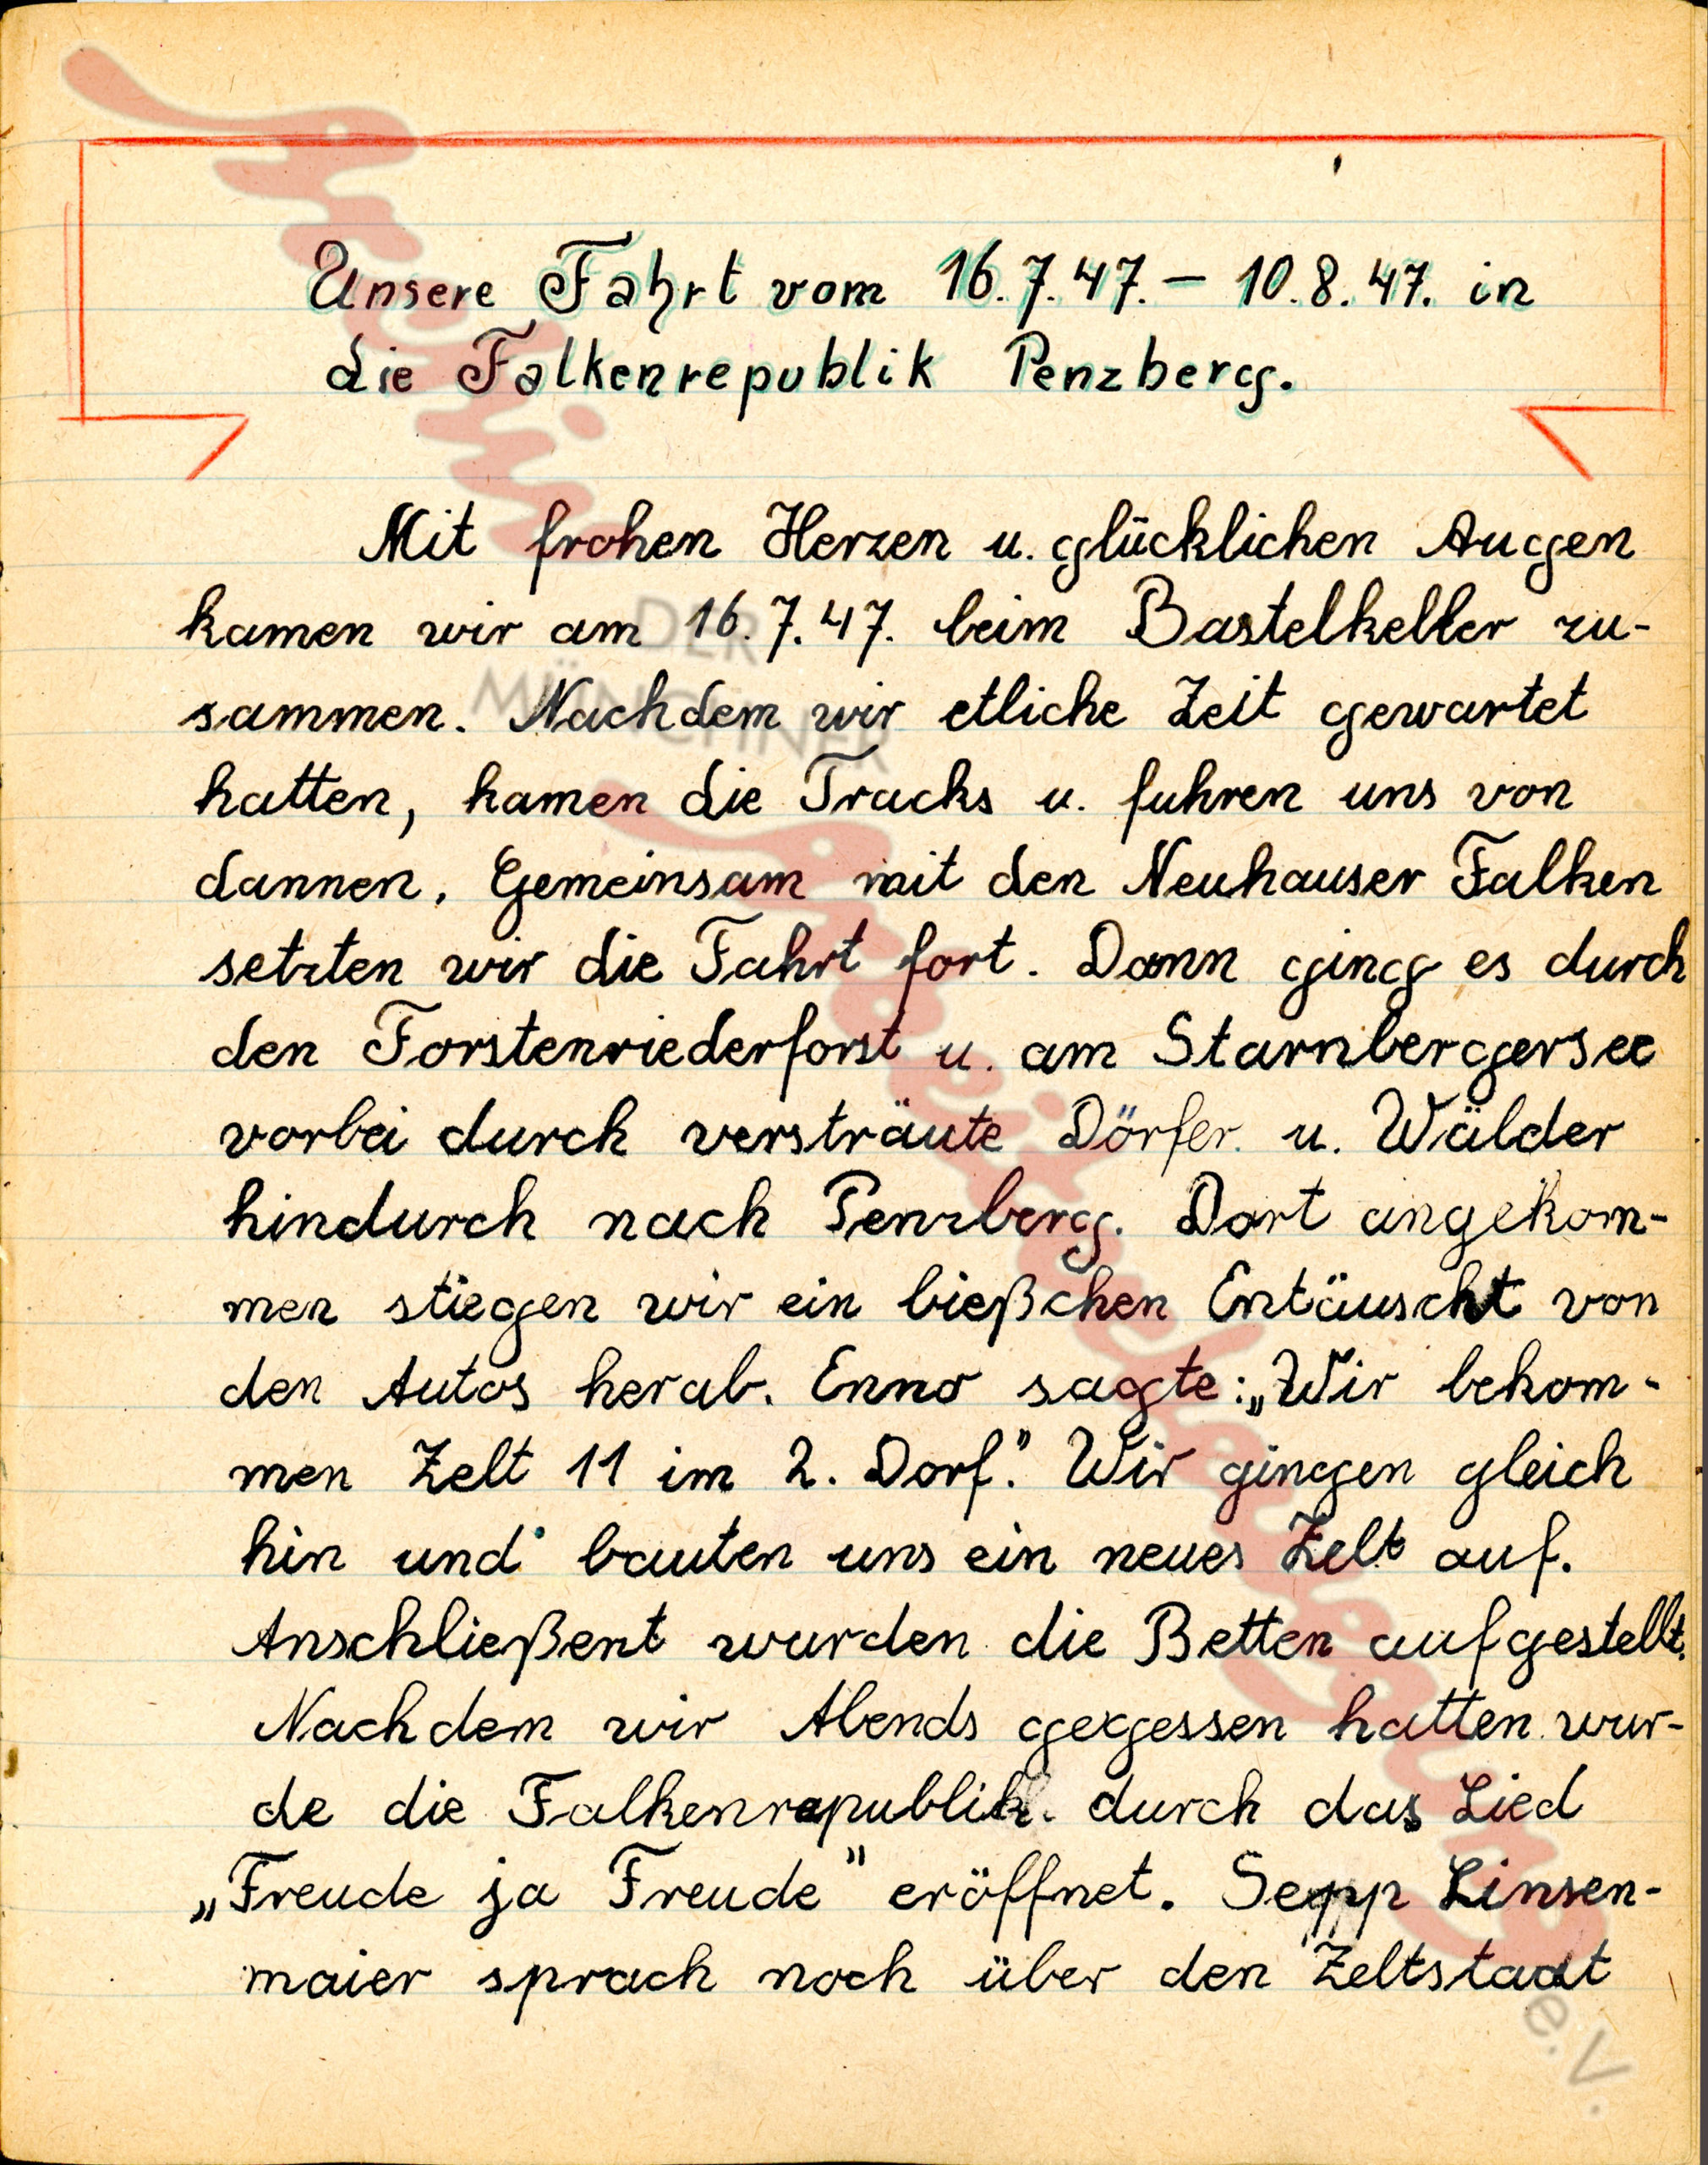 Unsere Fahrt vom 16.7.47. – 10.8.47. in
die Falkenrepublik Penzberg.
Mit frohen Herzen u. glücklichen Augen
kamen wir am 16.7.47. beim Bastelkeller zu-
sammen. Nachdem wir etliche Zeit gewartet
hatten, kamen die Tracks u. fuhren uns von
dannen. Gemeinsam mit den Neuhauser Falken
setzten wir die Fahrt fort. Dann ging es durch
den Forstenriederforst u. am Starnbergersee
vorbei durch versträute Dörfer u. Wälder
hindurch nach Penzberg. Dort angekom-
men stiegen wir ein bießchen Entäuscht von
den Autos herab. Enno sagte: „Wir bekom-
men Zelt 11 im 2. Dorf." Wir gingen gleich
hin und bauten uns ein neues Zelt auf.
Anschließent wurden die Betten aufgestellt.
Nachdem wir Abends gegessen hatten wur-
de die Falkenrepublik durch das Lied
„Freude ja Freude" eröffnet. Sepp Linsen-
maier sprach noch über den Zeltstadt
Archiv
DER
MÜNCHNER
Arbeiterbewegung
e.V.